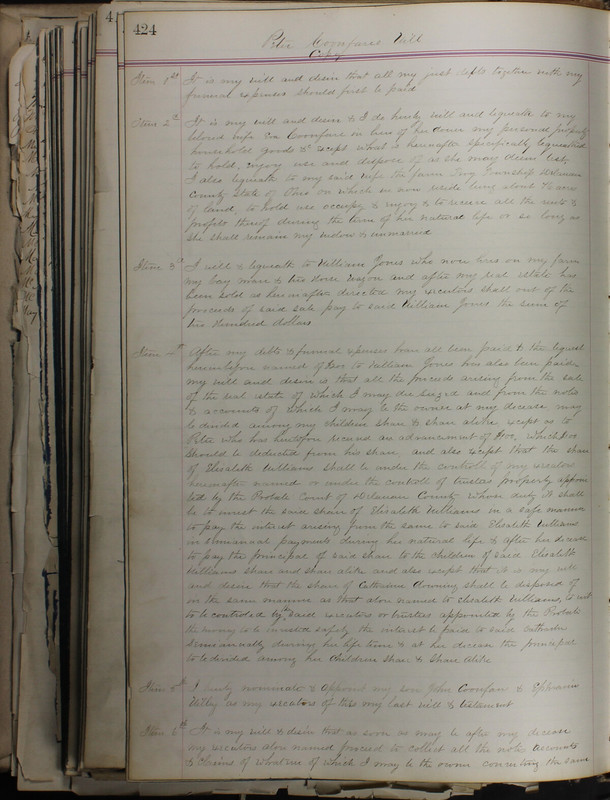 424
Peter Coonfare Will
Copy
Item 1st It is my will and desire that all my just debts together with my
funeral expenses should first be paid
Item 2d It is my will and desire & I do hereby will and bequeath to my
beloved wife Eva Coonfare in lieu of her dower my personal property
household goods &c except what is hereafter specifically bequeathed
to hold, enjoy use and dispose of as she may deem best
I also bequeath to my said wife the farm Troy Township Delaware
County State of Ohio on which we now reside being about acres
of land, to hold use occupy & enjoy & to receive all the rents &
profits thereof during the term of her natural life or so long as
she shall remain my widow & unmarried
Item 3d I will & bequeath to William Jones who now lives on my farm
my bay mare & two horse wagon and after my real estate has
been sold as hereinafter directed my executors shall out of the
proceeds of said sale pay to said William Jones the sum of
two hundred dollars
Item 4th After my debts & funeral expenses have all been paid & the bequest
hereinbefore named of $200 to William Jones has also been paid
my will and desire is that all the proceeds arising from the sale
of the real estate of which I may die seized and from the notes
& accounts of which I may be the owner at my decease may
be divided among my children share & share alike except as to
Peter who has heretofore received an advancement of $100, which $100
should be deducted from his share, and also except that the share
of Elisabeth Williams shall be under the controll of my executors
hereinafter named or under the controll of trustees properly appoin
ted by the Probate Court of Delaware County whose duty it shall
be to invest the said share of Elisabeth Williams in a safe manner
to pay the interest arising from the same to said Elisabeth Williams
in semiannual payments during her natural life & after her decease
to pay the principal of said share to the children of said Elisabeth
Williams share and share alike and also except that it is my will
and desire that the share of Catherine Downing shall be disposed of
in the same manner as that above named to Elisabeth Williams, to wit
to be controled by the said executors or trustees appointed by the Probate
the money to be invested safely the interest to be paid to said Catharine
Semianually during her life time & at her decease the principal
to be divided among her children share & share alike
Item 5th I hereby nominate & appoint my son John Coonfare & Ephraim
Willey as my executors of this my last will & testament
Item 6th It is my will & desire that as soon as may be after my decease
my executors above named proceed to collect all the notes accounts
& claims of whatever of which I may be the owner converting the same